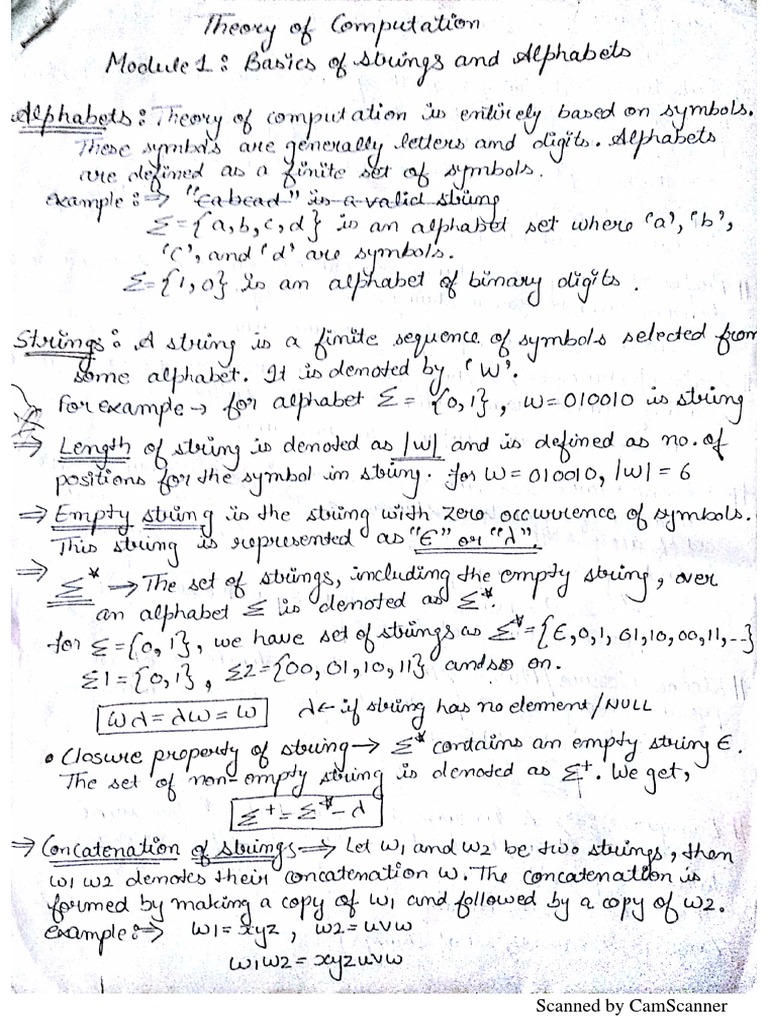 Theory of Computation
Module 1: Basics of strings and Alphabets
Alphabets: Theory of computation is entirely based on symbols.
These symbols are generally letters and digits. Alphabets
are defined as a finite set of symbols.
example:⇒ "Eabcad" is a valid string
Σ={a,b,c,d} is an alphabet set where 'a', 'b',
'c', and 'd' are symbols.
Σ={1,0} is an alphabet of binary digits.
Strings: A string is a finite sequence of symbols selected from
some alphabet. It is denoted by 'W'.
For example→ for alphabet Σ = {0,1}, w=010010 is string
⇒ Length of string is denoted as |w| and is defined as no. of
positions for the symbol in string. for w=010010, |w|=6
⇒ Empty string is the string with zero occurrence of symbols.
This string is represented as "ϵ" or "λ".
⇒ Σ* → The set of strings, including the empty string, over
an alphabet Σ is denoted as Σ*.
for Σ={0,1}, we have set of strings as Σ*={ϵ,0,1,01,10,00,11,--}
Σ1={0,1}, Σ2={00,01,10,11} and so on.
wλ=λw=w λ← if string has no element/NULL
• Closure property of string→ Σ* contains an empty string ϵ.
The set of non-empty string is denoted as Σ+. We get,
Σ+=Σ*-λ
⇒ Concatenation of strings→ Let w1 and w2 be two strings, then
w1 w2 denotes their concatenation w. The concatenation is
formed by making a copy of w1 and followed by a copy of w2.
example:⇒ w1=xyz, w2=uvw
w1w2=xyzuvw
Scanned by CamScanner